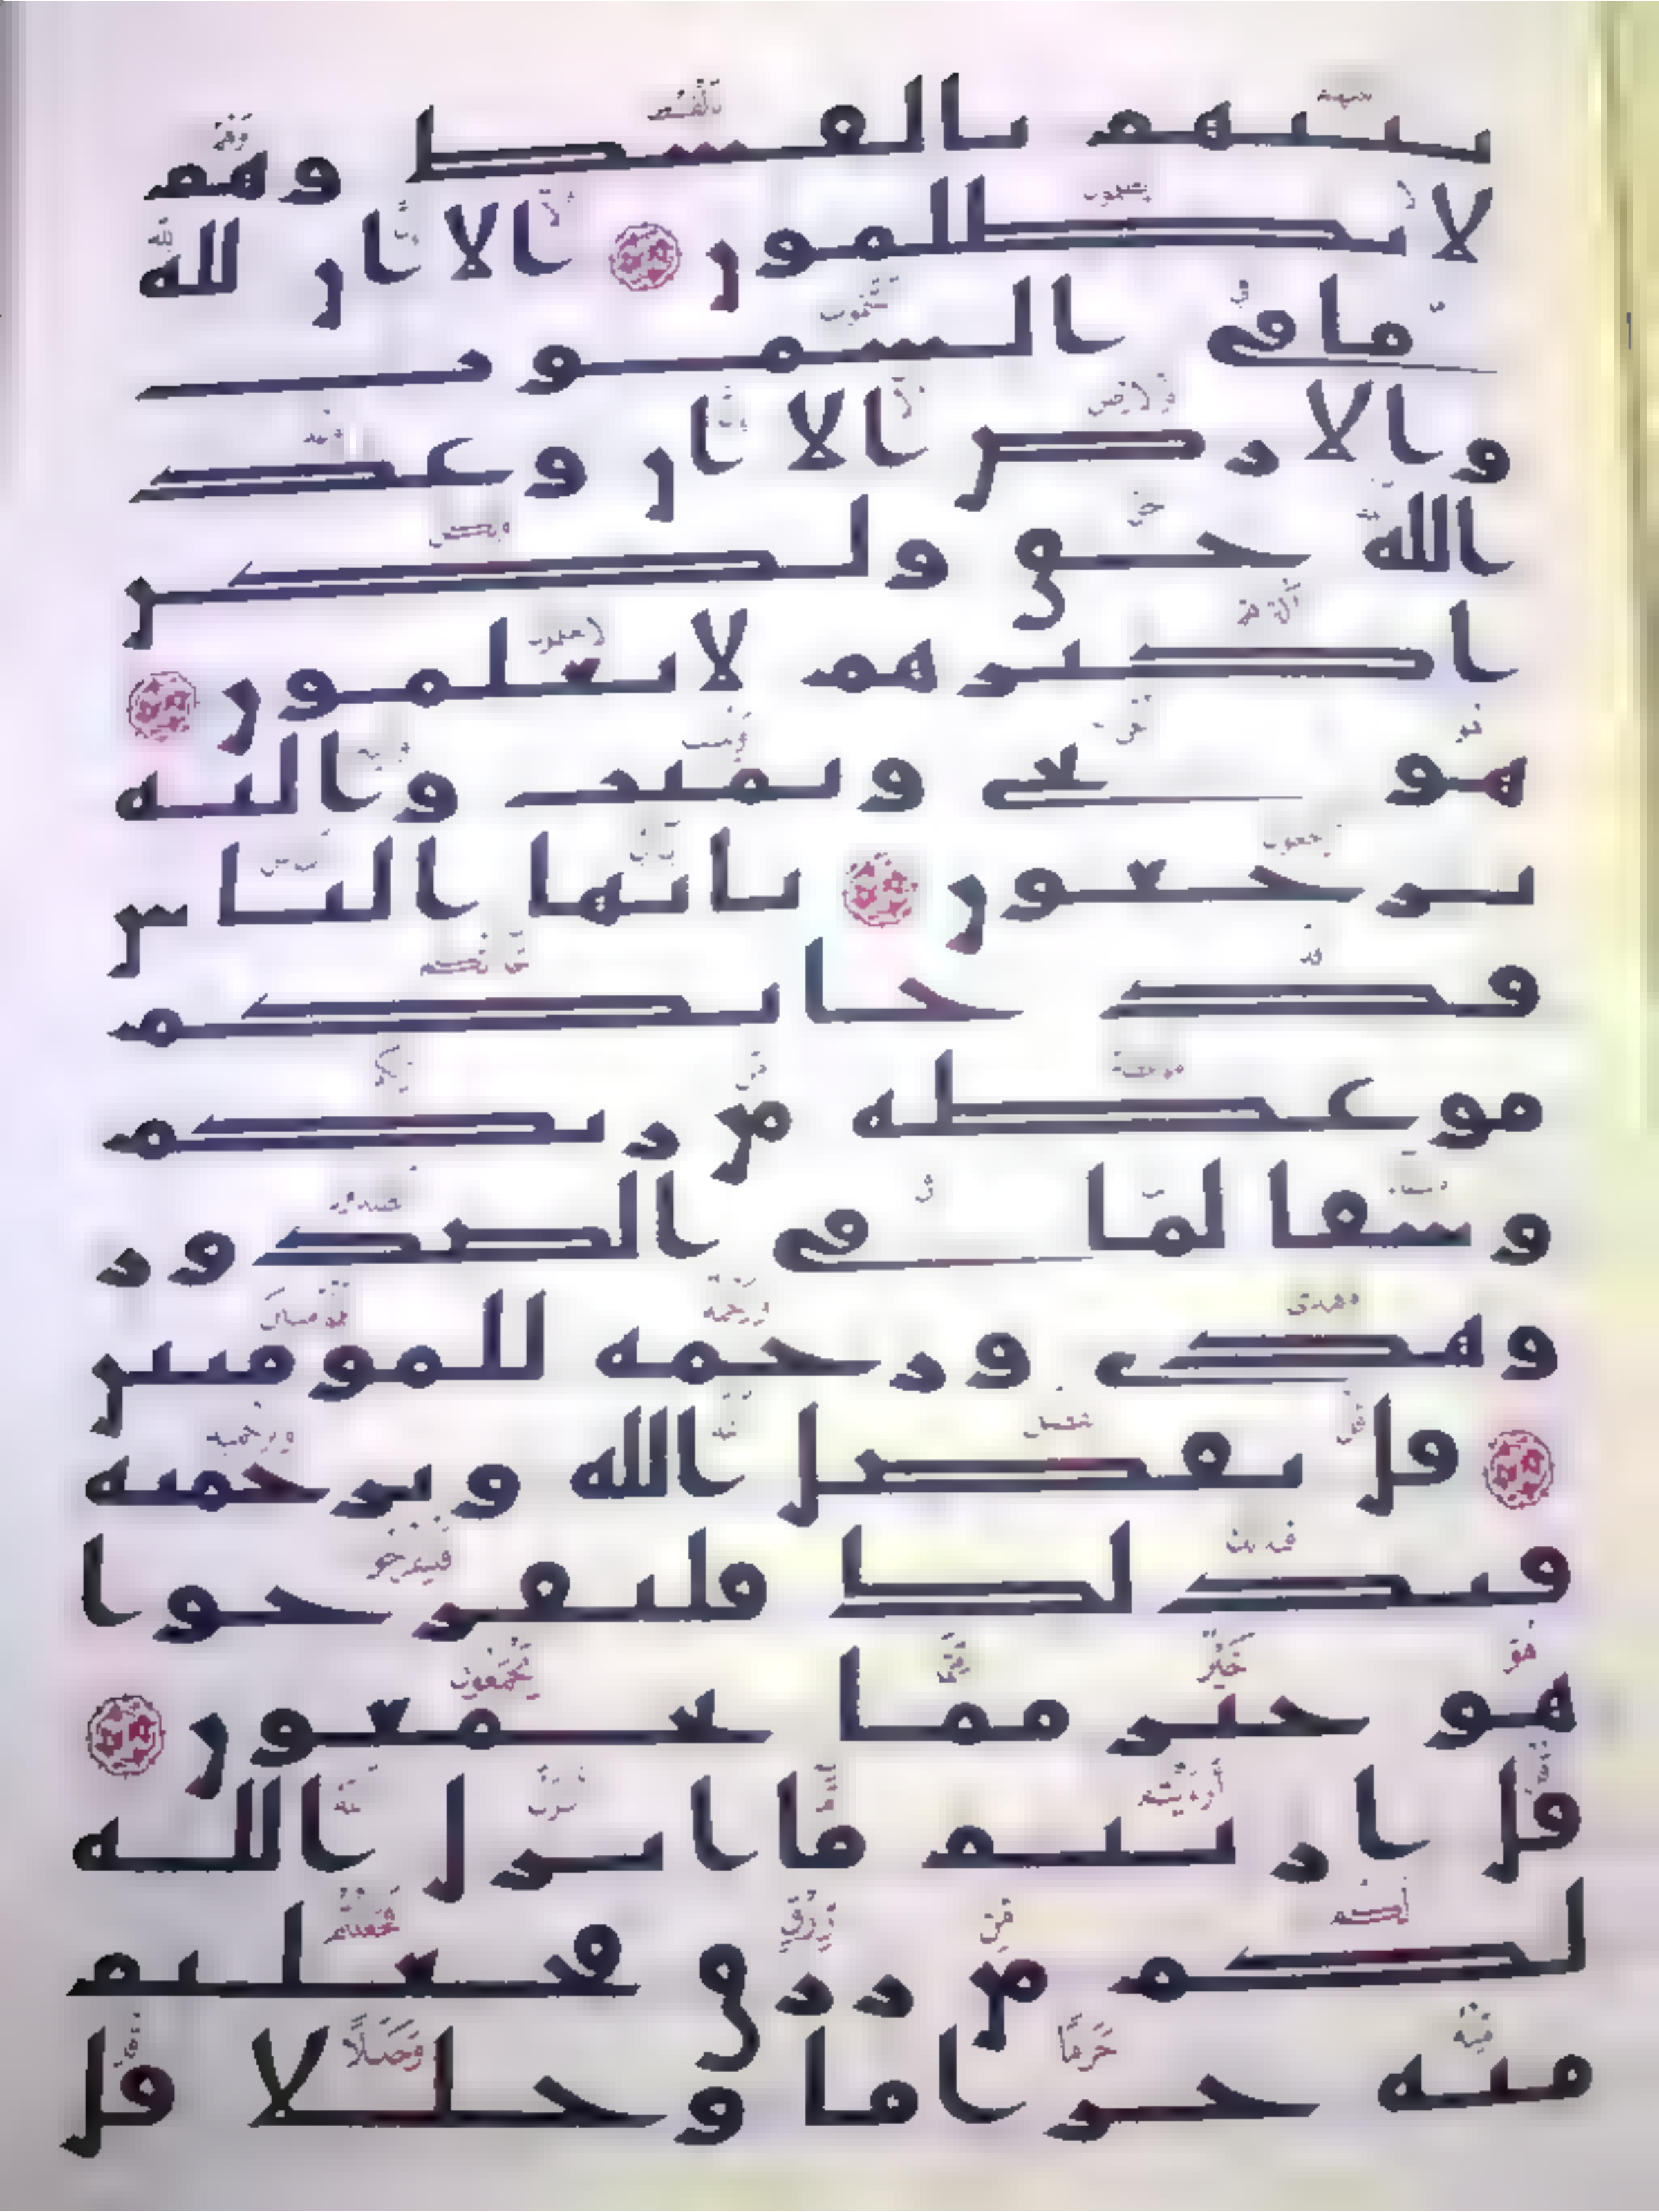 بينهم بالقسط وهم
لا يظلمون الا ان لله
ما في السموت
والارض الا ان وعد
الله حق ولكن
اكثرهم لا يعلمون
هو يحي ويميت واليه
ترجعون يايها الناس
قد جاتكم
موعظه من ربكم
وشفا لما في الصدور
وهدى ورحمه للمومنين
قل بفضل الله وبرحمته
فبذلك فليفرحوا
هو خير مما يجمعون
قل ارايتم ما انزل الله
لكم من رزق فجعلتم
منه حراما وحللا قل